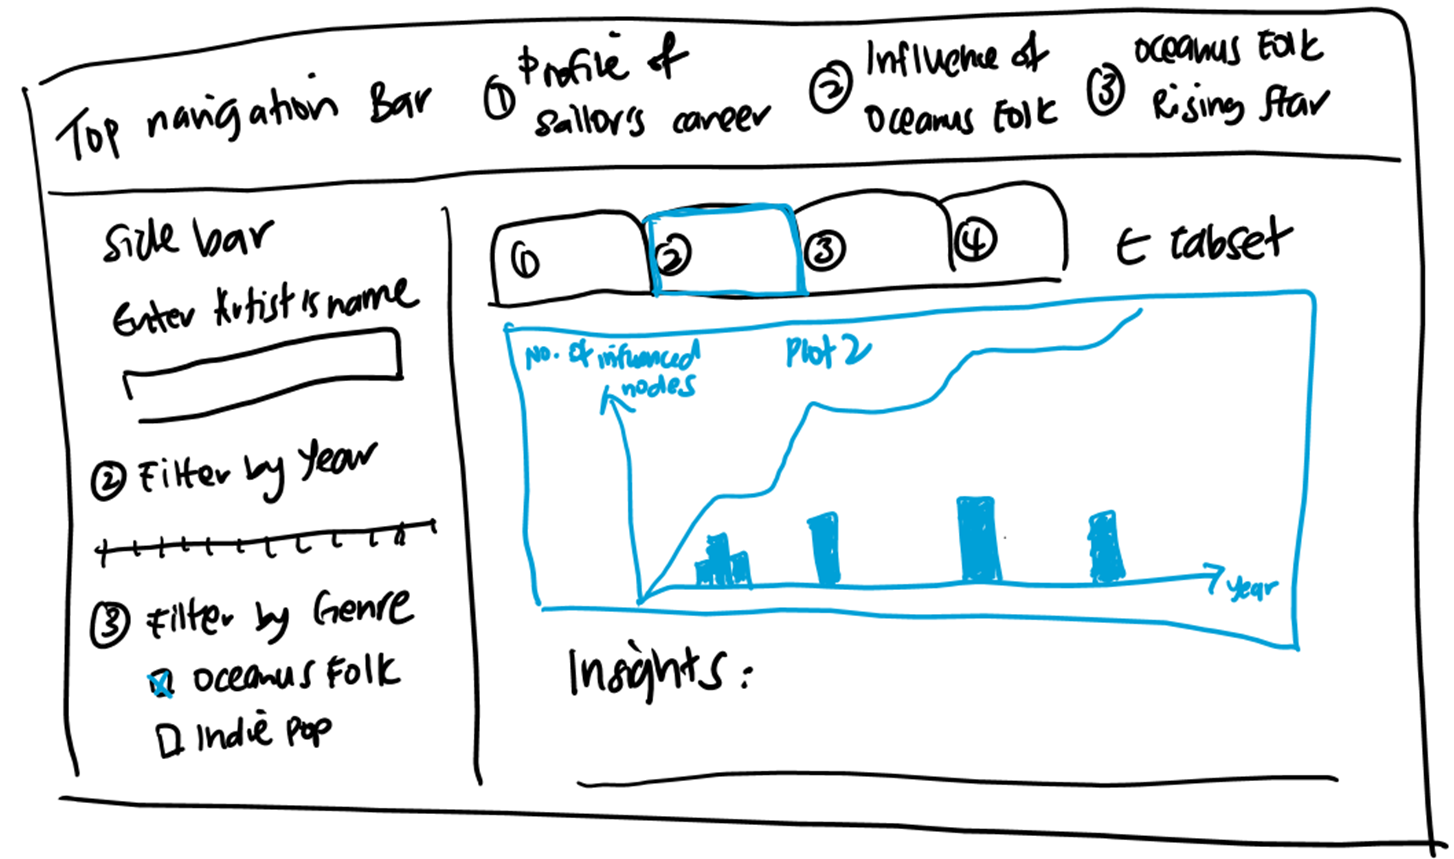 Top navigation Bar
① Profile of
Sailor's career
② Influence of
Oceanus Folk
③ Oceanus Folk
Rising Star
Side bar
Enter Artist's name
② Filter by Year
③ Filter by Genre
Oceanus Folk
Indie Pop
① ② ③ ④ ← tabset
No. of influenced
nodes
Plot 2
Year
Insights: